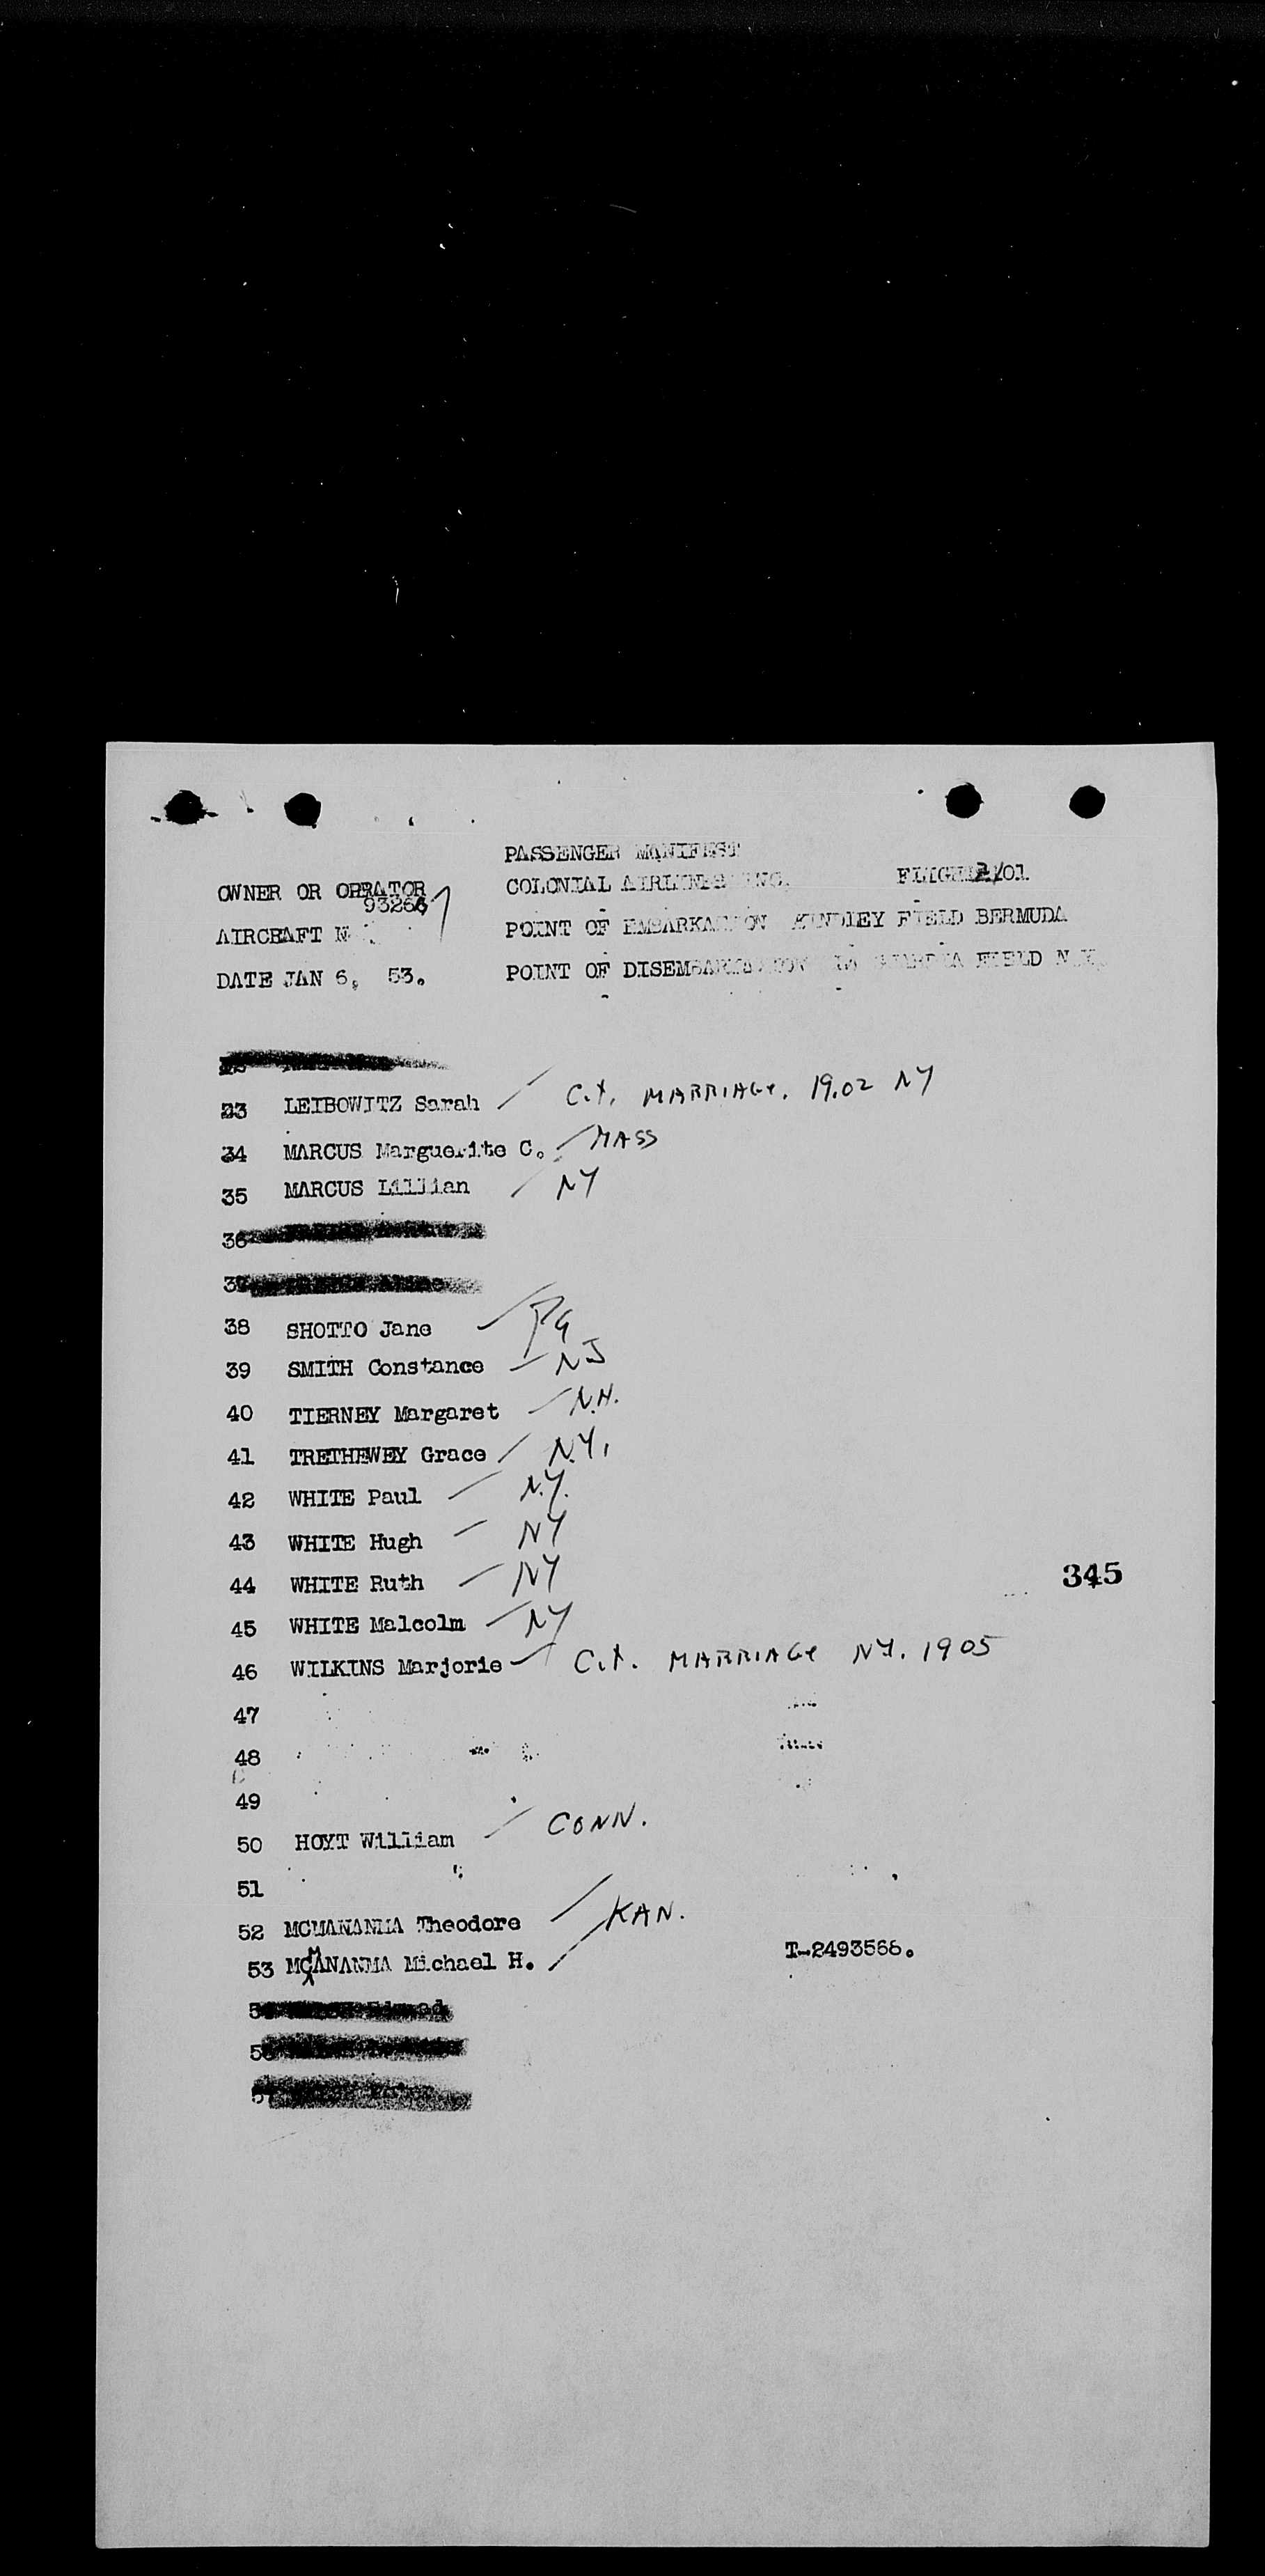 PASSENGER MANIFEST
OWNER OR OPRATOR COLONIAL AIRLINES INC. /01
93266
AIRCRAFT POINT OF EMBARKATION KINDLEY FIELD BERMUDA
DATE JAN 6, 53. POINT OF DISEMBARKATION LA FIELD N.Y.
LEIBOWITZ Sarah Cit. MARRIAGE. 1902 NY
34 MARCUS Marguerite C. MASS
35 MARCUS Lillian NY
36
38 SHOTTO Jane PA
39 SMITH Constance NJ
40 TIERNEY Margaret N.H.
41 TRETHEWEY Grace N.Y.
42 WHITE Paul N.Y.
43 WHITE Hugh NY
44 WHITE Ruth NY
345
45 WHITE Malcolm NY
46 WILKINS Marjorie Cit. MARRIAGE NY. 1905
47
48
49
50 HOYT William CONN.
51
52 Theodore KAN.
53 Michael H. T-2493566.